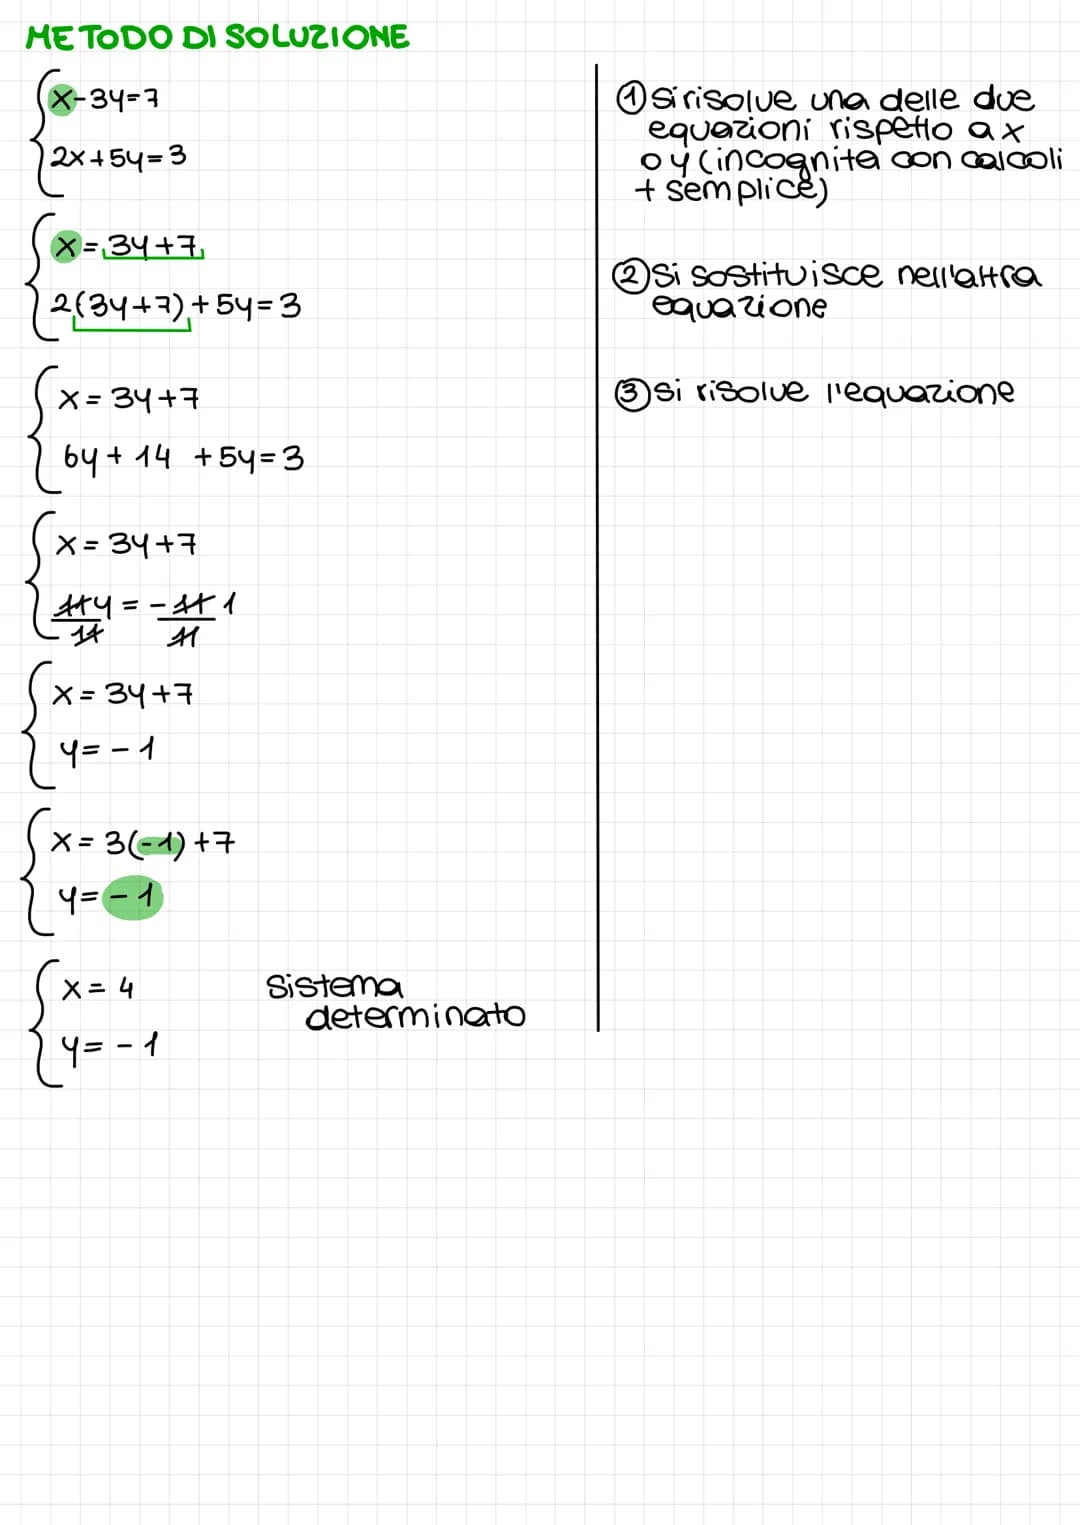 METODO DI SOLUZIONE
x-3y=7
2x+5y=3
x=3y+7
2(3y+7)+5y=3
x=3y+7
6y+14 +5y=3
x=3y+7
11y = -11 1
11 11
x=3y+7
y=-1
x=3(-1)+7
y=-1
x=4
y=-1
Sistema
determinato
① Si risolve una delle due
equazioni rispetto a x
o y (incognita con calcoli
+ semplice)
② Si sostituisce nell'altra
equazione
③ Si risolve l'equazione